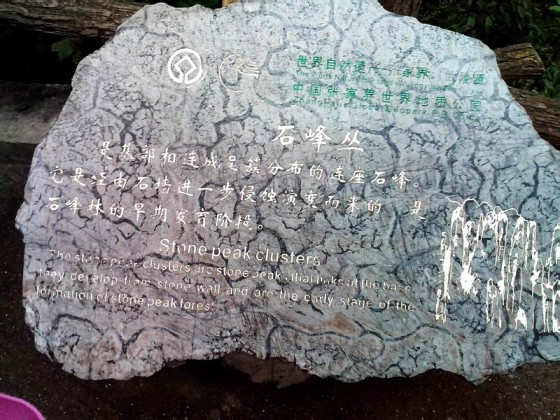 世界自然遗产 家界 陵源
中国张家界世界地质公园
石峰丛
是基部相连成呈簇分布的连座石峰。
它是经由石墙进一步侵蚀演变而来的 是
石峰林的早期发育阶段。
Stone peak clusters
The stone peak clusters are stone peaks that links at the base.
They develop from stone wall and are the early stage of the
formation of stone peak forest.